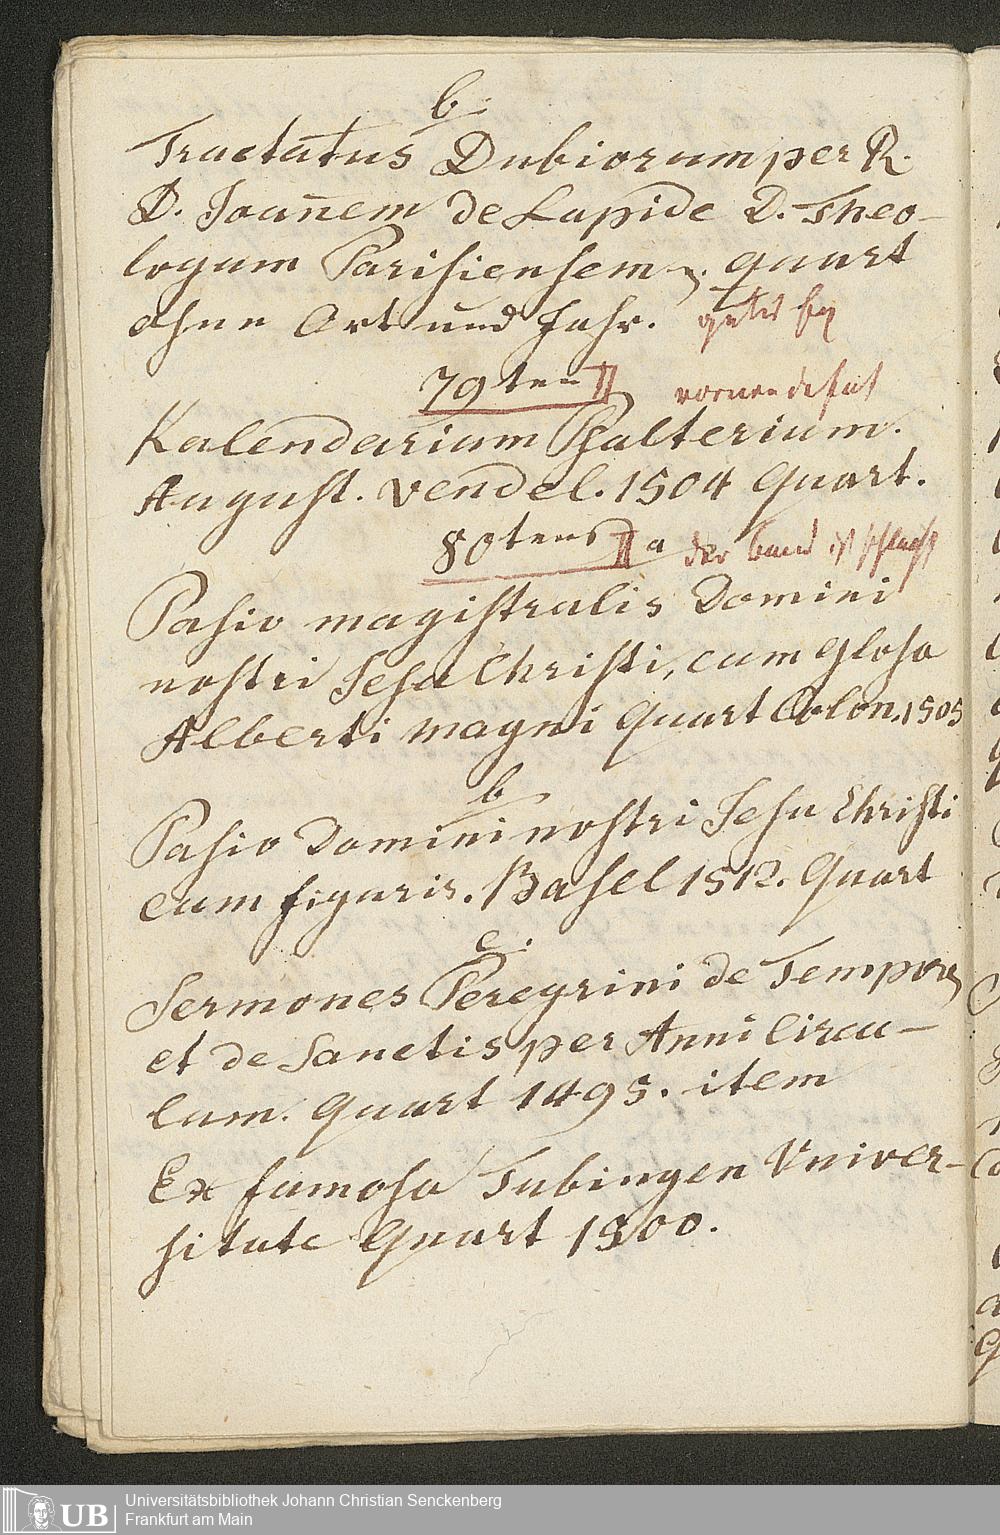 b.
Tractatus Dubiorum per R.
D. Joan̄em de Lapide D. Theo-
logum Parisiensem. quart
ohne Ort und Jahr.
79ten
vornen defect
Kalendarium Psalterium.
August. Vendel. 1504 Quart.
80tens a der band ist schlecht
Pasio magistralis Domini
nostri Jesu Christi, cum Glosa
Alberti magni Quart Colon. 1505
b
Pasio Domini nostri Jesu Christi
cum figuris. Basel 1512. Quart
c.
Sermones Peregrini de Tempore
et de Sanctis per Anni Circu-
lum. Quart 1495. item
Ex famosa Tubingen Univer-
sitate Quart 1500.
UB
Universitätsbibliothek Johann Christian Senckenberg
Frankfurt am Main